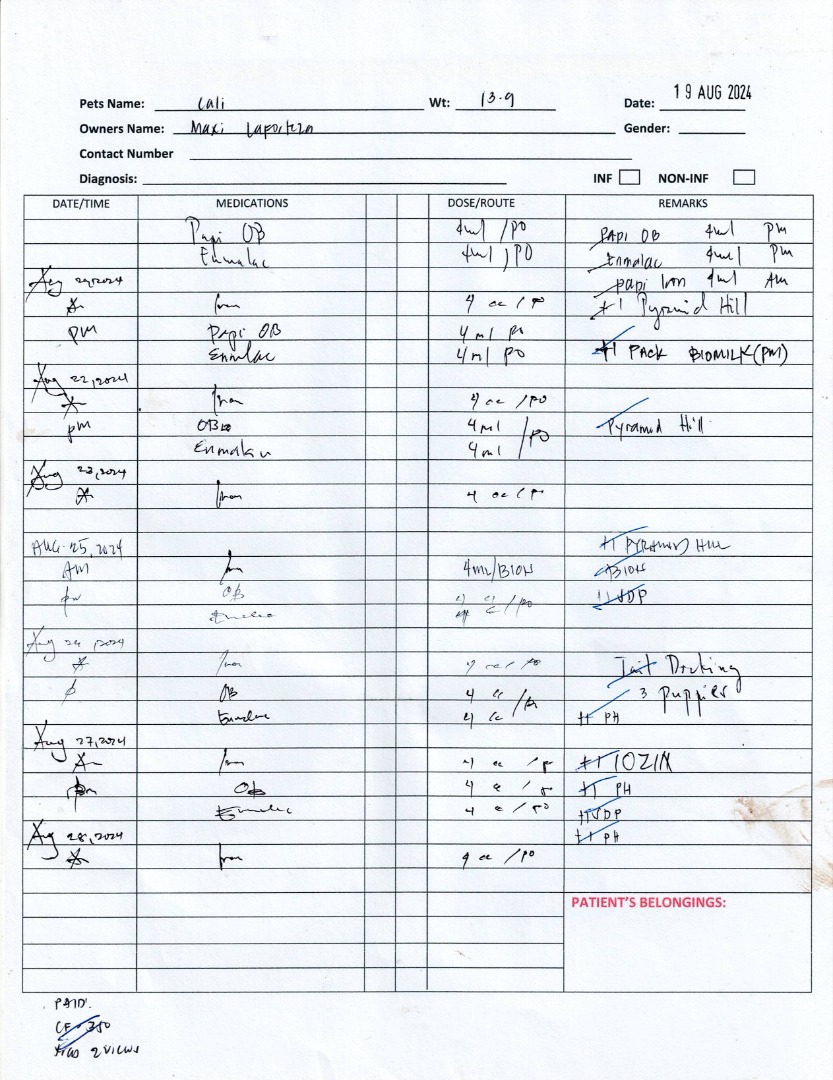 Pets Name: Cali Wt: 13.9 Date: 19 AUG 2024
Owners Name: Maxi Gender:
Contact Number
Diagnosis: INF NON-INF
DATE/TIME MEDICATIONS DOSE/ROUTE REMARKS
Papi OB 4ml /PO PAPI OB 4ml PM
Enmalac 4ml /PO Enmalac 4ml PM
Aug 2024 papi Iron 4ml AM
Iron 4 cc /PO #1 Pyramid Hill
pm Papi OB 4 ml PO
Enmalac 4 ml PO #1 PACK BIOMILK (PM)
Aug 22, 2024
Iron 4 cc /PO
pm OB 4 ml /PO Pyramid Hill
Enmalac 4 ml
Aug 23, 2024
Iron 4 cc /PO
AUG. 25, 2024 #1 PYRAMID HILL
AM Iron 4ml/BION BION
pm OB 4 cc /PO #1 JDP
Enmalac
Aug 2024
Iron 4 cc /PO Tail Docking
p OB 4 cc /PO 3 puppies
Enmalac 4 cc #1 PH
Aug 27, 2024
Iron 4 cc /PO #1 IOZIN
pm OB 4 cc /PO #1 PH
Enmalac 4 cc /PO #1 JDP
Aug 28, 2024 #1 PH
Iron 4 cc /PO
PATIENT'S BELONGINGS:
PAID.
CF 350
2 VIEWS